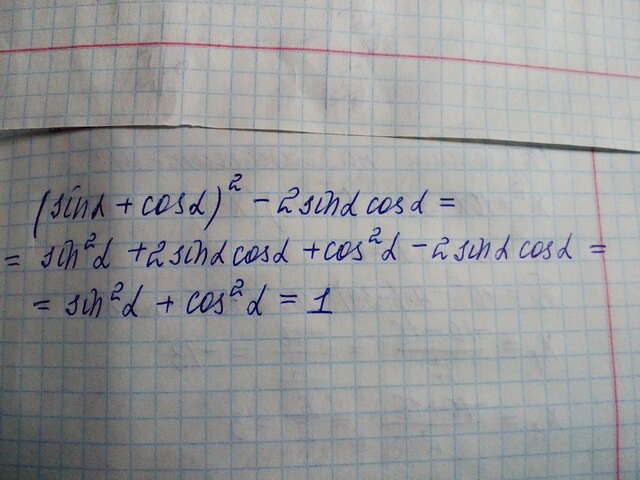 (sinα + cosα)² - 2sinα cosα =
= sin²α + 2sinα cosα + cos²α - 2sinα cosα =
= sin²α + cos²α = 1